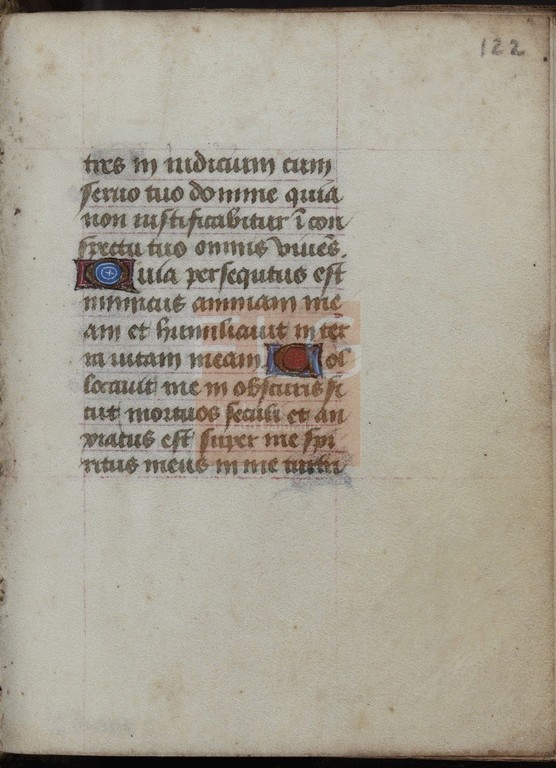 122
tres in iudicium cum
seruo tuo domine quia
non iustificabitur ī con
spectu tuo omnis viuēs.
Quia persequtus est
inimicus animam me
am et humiliauit in ter
ra uitam meam Col
locauit me in obscuris si
cut mortuos seculi et an
xiatus est super me spi
ritus meus in me turba